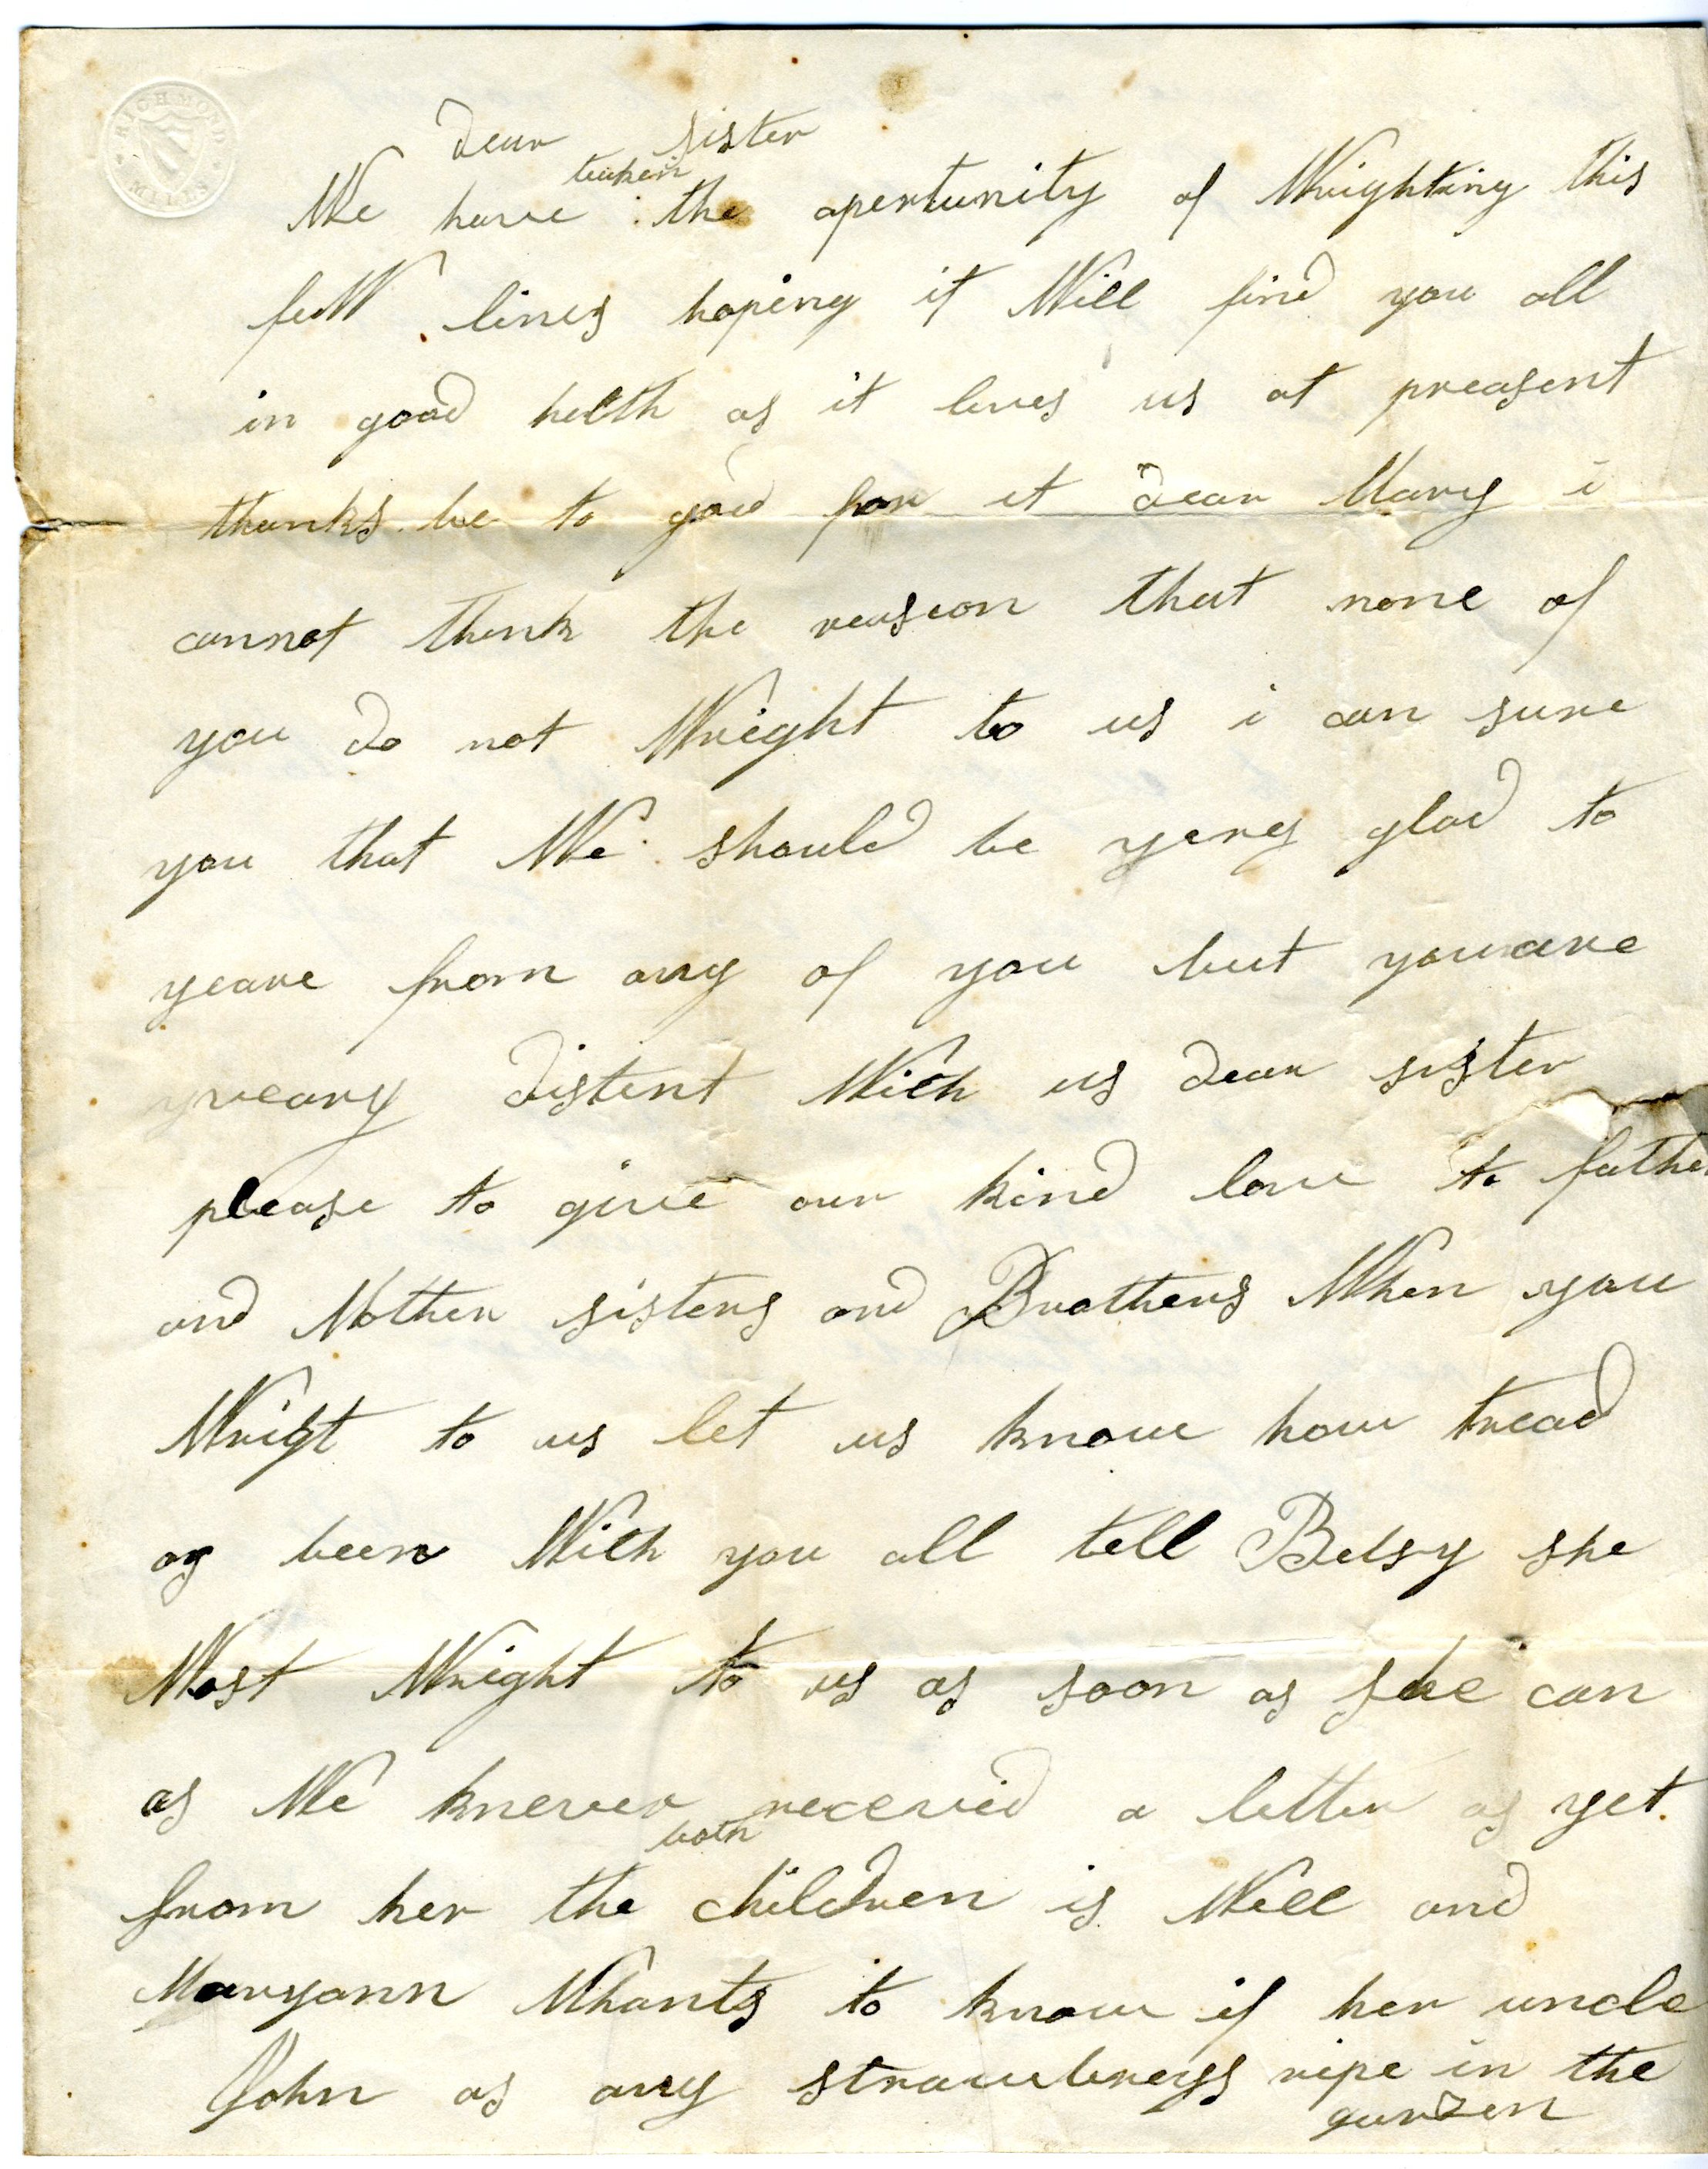 RICHMOND MILLS
Dear Sister
We have taken the apertunity of Wrighting this
feW lines hoping it Will find you all
in good helth as it leves us at preasent
thanks be to god for it Dear Mary i
cannot think the reason that none of
you do not Wright to us i can sure
you that We should be yery glad to
yeare from any of you but you are
distent With us Dear sister
please to give our kind love to fathe
and Mother sisters and Brothers When you
Wright to us let us know how tread
as been With you all tell Betsy she
Most Wright to us as soon as she can
as We knever received a letter as yet.
from her the both children is Well and
Maryann Whants to know if her uncle
John as any strawbreys ripe in the
garden